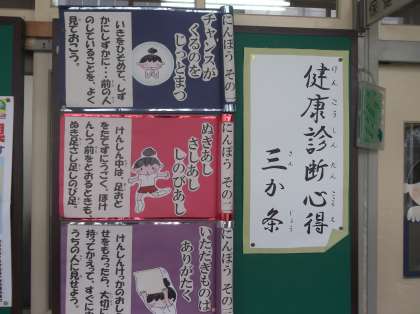 健康診断心得
けんこうしんだんこころえ
三か条
さん
じょう
にんぽう その一
チャンスが
くるのを
じっとまつ
いきをひそめて、しず
かにしずかに…前の人
のしていることを、よく
見ておこう。
にんぽう その二
ぬきあし
さしあし
しのびあし
けんしん中は、足おと
をたてずにうごく、ほけ
んしつ前をとおるときも、
ぬき足さし足しのび足。
にんぽう その
いただきものは
ありがたく
けんしんけっかのおし
せをもらったら、大切に
持ってかえって、すぐに
うちの人に見せよう。